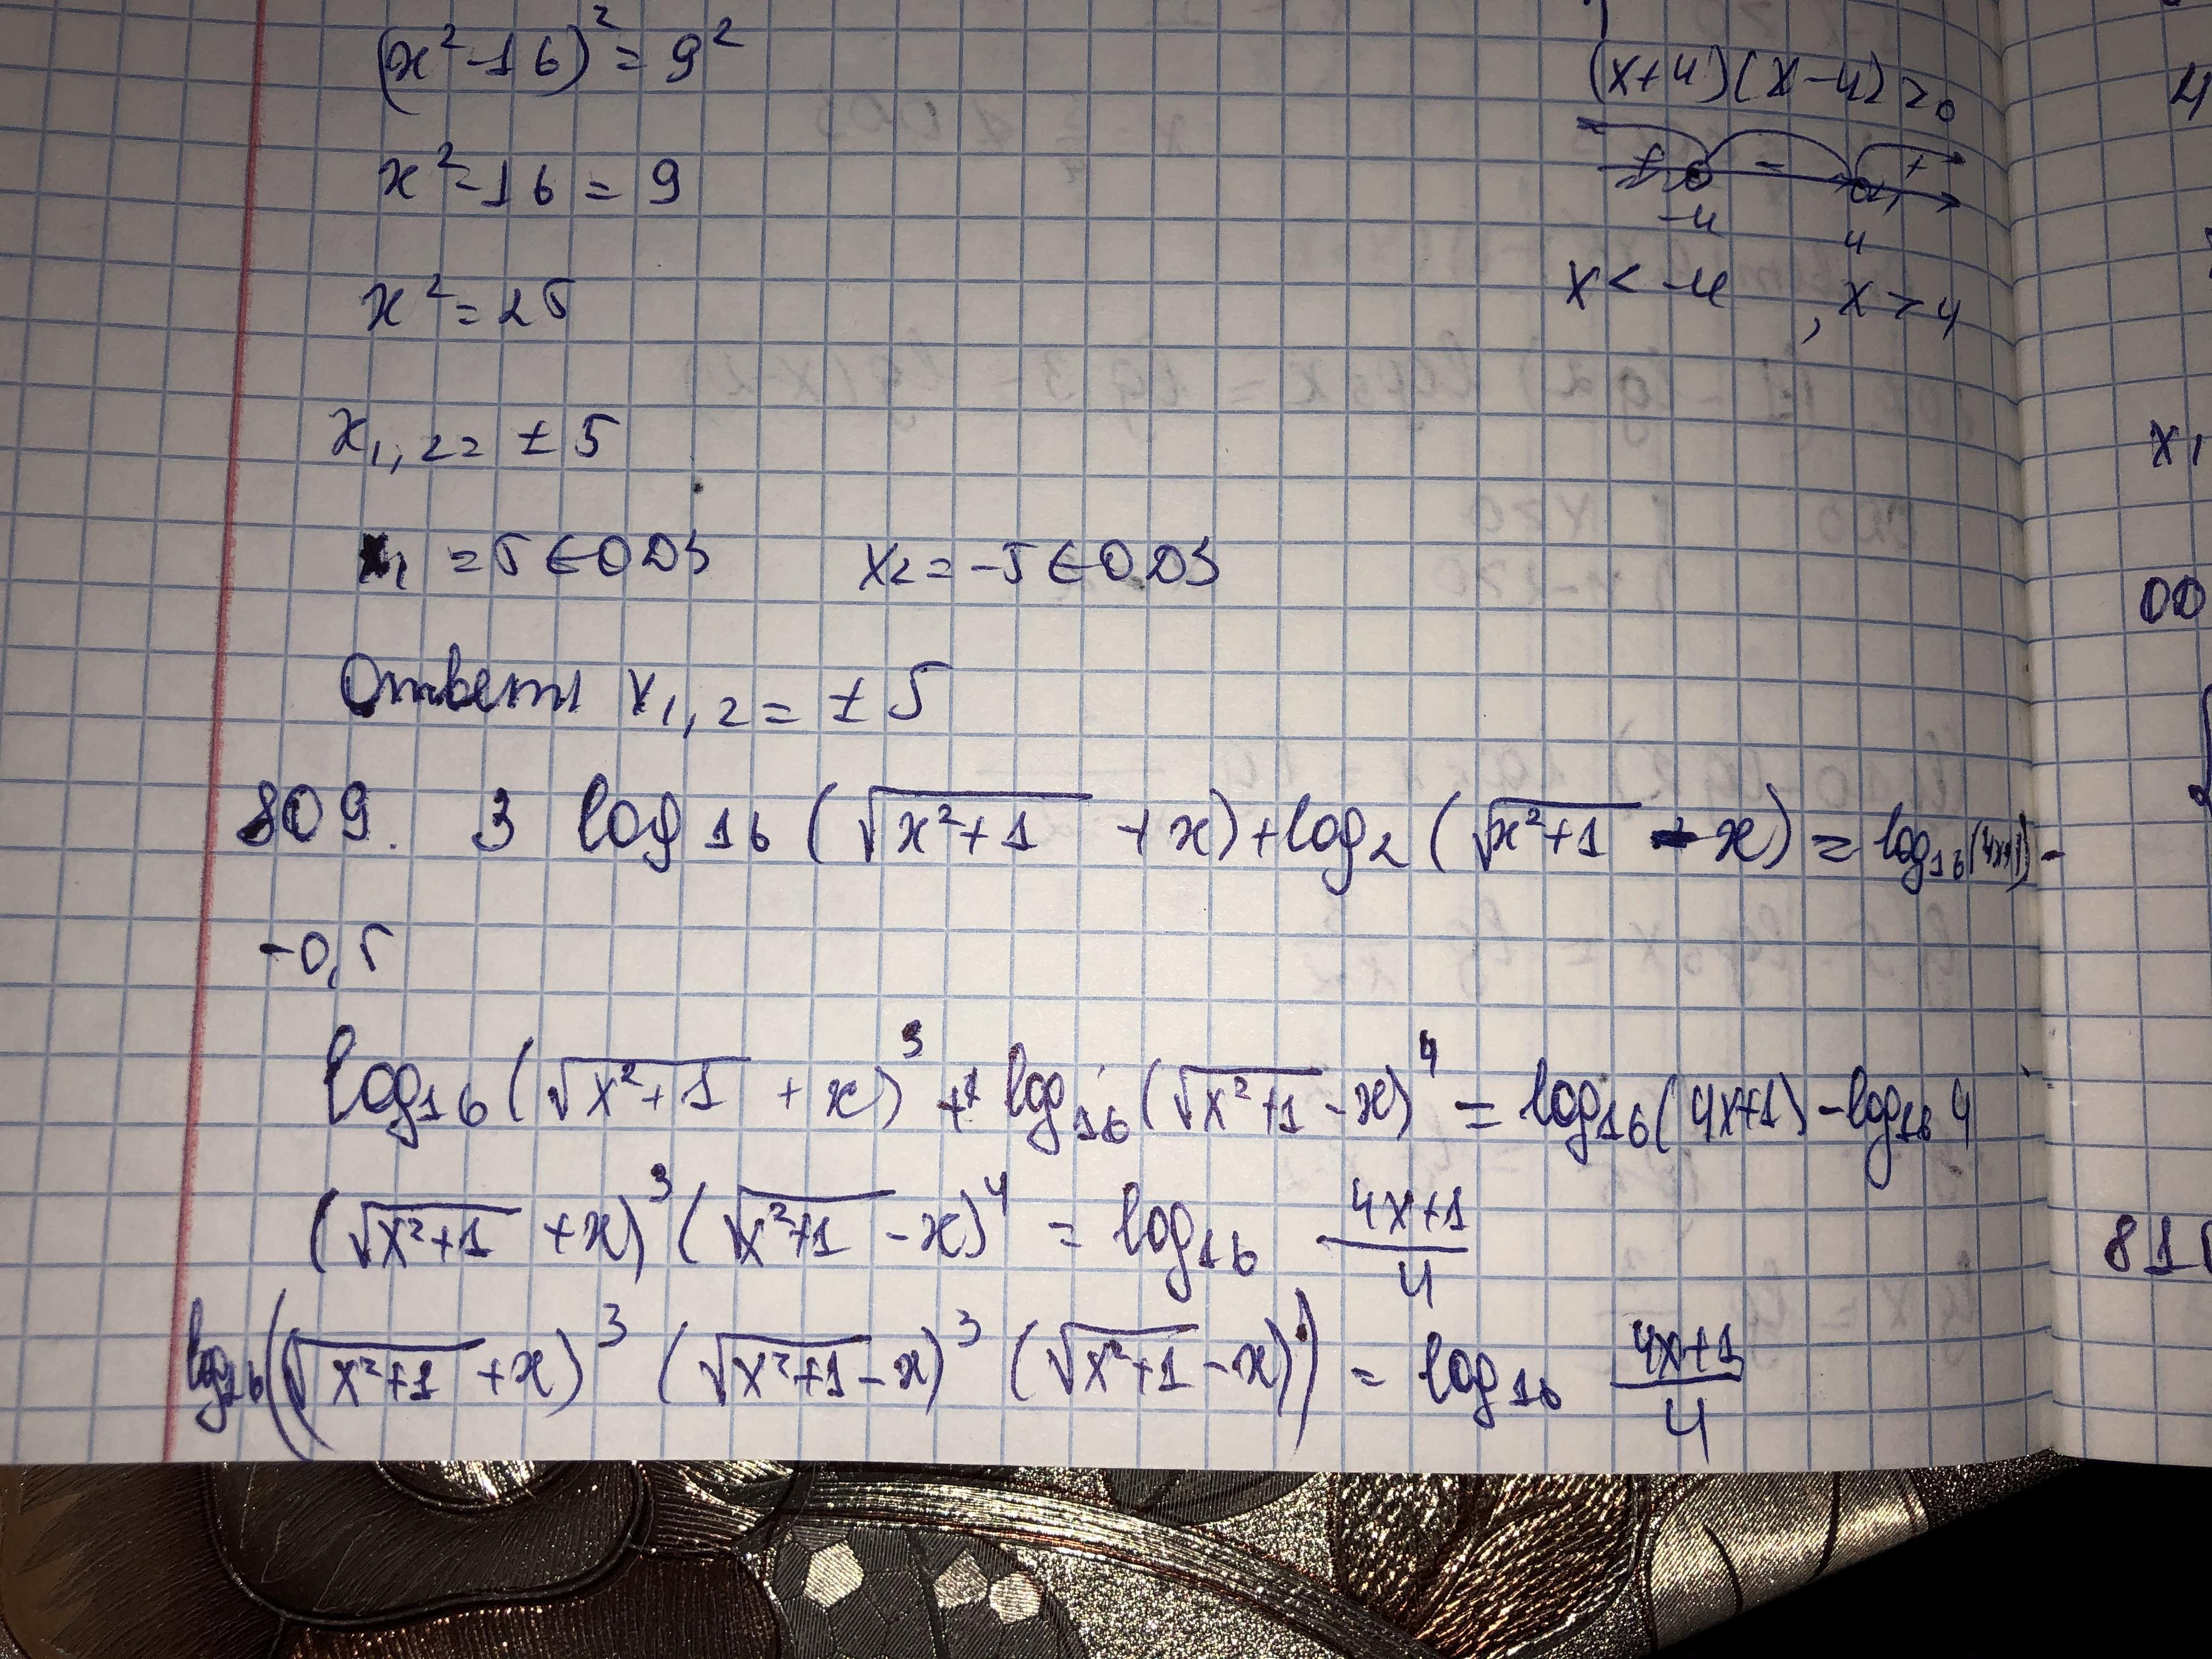 (x²-16)² = 9²
(x+4)(x-4)>0
x²-16 = 9
+ - +
-4 4
x² = 25
x < -4 , x > 4
x₁,₂ = ± 5
x₁ = 5 ∈ ОДЗ x₂ = -5 ∈ ОДЗ
Ответ x₁,₂ = ± 5
809. 3 log₁₆(√(x²+1) + x) + log₂(√(x²+1) - x) = log₁₆(4x+1) -
-0,5
log₁₆(√(x²+1) + x)³ + log₁₆(√(x²+1) - x)⁴ = log₁₆(4x+1) - log₁₆ 4
(√(x²+1) + x)³ (√(x²+1) - x)⁴ = log₁₆ (4x+1)/4
log₁₆((√(x²+1) + x)³ (√(x²+1) - x)³ (√(x²+1) - x)) = log₁₆ (4x+1)/4
4
x₁